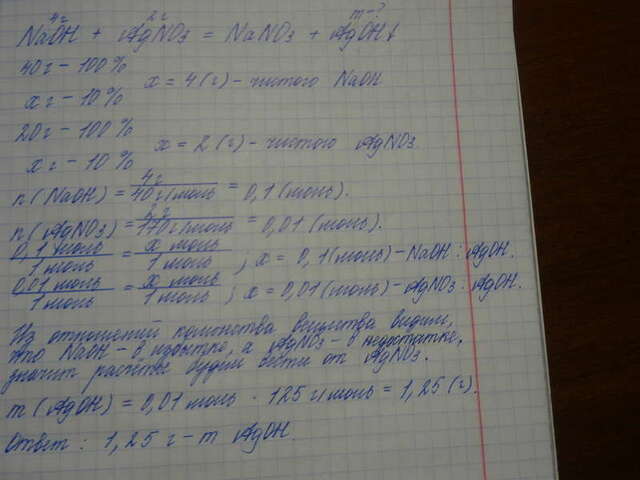 4г 2г m-?
NaOH + AgNO3 = NaNO3 + AgOH↓
40г - 100%
x г - 10%
x = 4 (г) - чистого NaOH
20г - 100%
x г - 10%
x = 2 (г) - чистого AgNO3.
n(NaOH) = 4г / 40г/моль = 0,1 (моль).
n(AgNO3) = 2г / 170г/моль = 0,01 (моль).
0,1 моль / 1 моль = x моль / 1 моль ; x = 0,1 (моль) - NaOH : AgOH.
0,01 моль / 1 моль = x моль / 1 моль ; x = 0,01 (моль) - AgNO3 : AgOH.
Из отношений количества вещества видим,
что NaOH - в избытке, а AgNO3 - в недостатке,
значит расчёты будем вести от AgNO3.
m (AgOH) = 0,01 моль · 125 г/моль = 1,25 (г).
Ответ : 1,25 г - m AgOH.